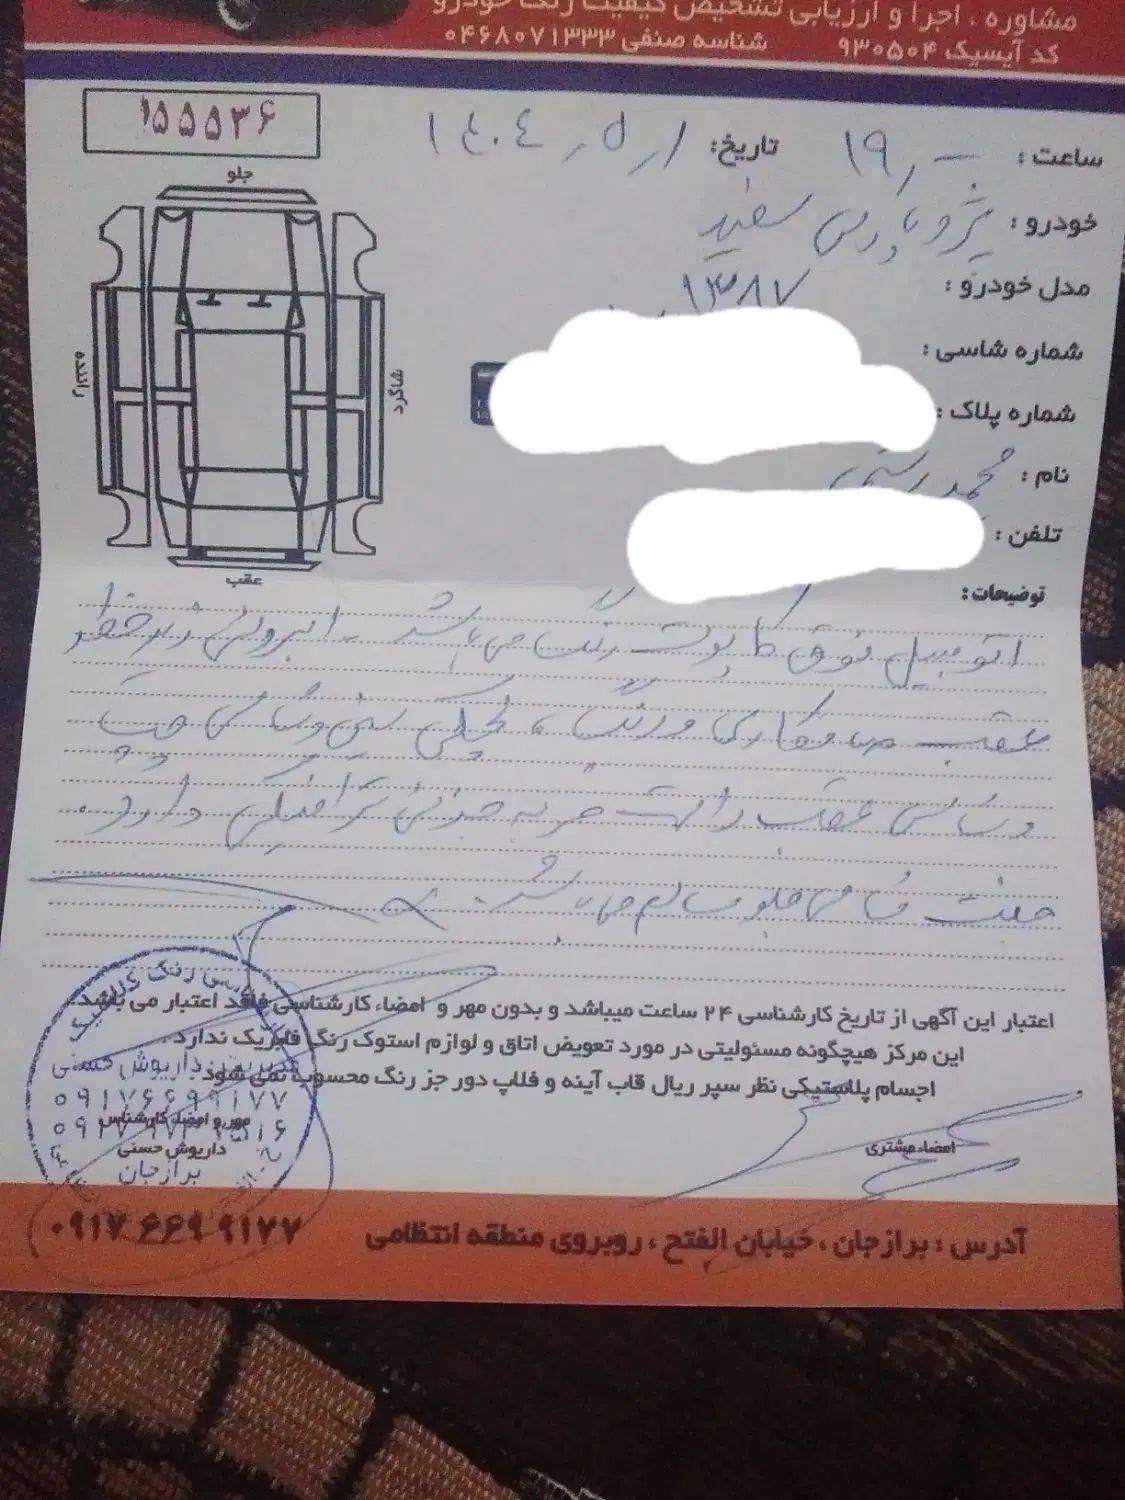 مشاوره ، اجرا و ارزیابی تشخیص کیفیت رنگ خودرو
کد آیسیک ۹۳۰۵۰۴ شناسه صنفی ۰۴۶۸۰۷۱۳۳۳
۱۵۵۵۳۶
ساعت : ۱۹,۰۰ تاریخ: ۱۴۰۴,۵,۱
خودرو : پژو پارس سفید
مدل خودرو : ۱۳۸۷
شماره شاسی :
شماره پلاک :
نام : محمد
تلفن :
جلو
راننده
شاگرد
عقب
توضیحات:
اتومبیل فوق کاپوت رنگ می باشد - ابرویی زیر خطر
عقب صافکاری و رنگ ، سینی و شاسی چپ
و شاسی عقب راست ضربه جزئی ترافیکی دارد.
جفت شاسی جلو سالم می باشد.
اعتبار این آگهی از تاریخ کارشناسی ۲۴ ساعت میباشد و بدون مهر و امضاء کارشناسی فاقد اعتبار می باشد.
این مرکز هیچگونه مسئولیتی در مورد تعویض اتاق و لوازم استوک رنگ فابریک ندارد.
اجسام پلاستیکی نظر سپر ریال قاب آینه و فلاپ دور جز رنگ محسوب نمی شود
مدیریت: داریوش حسنی
۰۹۱۷۶۶۹۹۱۷۷
مهر و امضاء کارشناس
داریوش حسنی
برازجان
امضاء مشتری
آدرس : برازجان ، خیابان الفتح ، روبروی منطقه انتظامی ۰۹۱۷ ۶۶۹ ۹۱۷۷